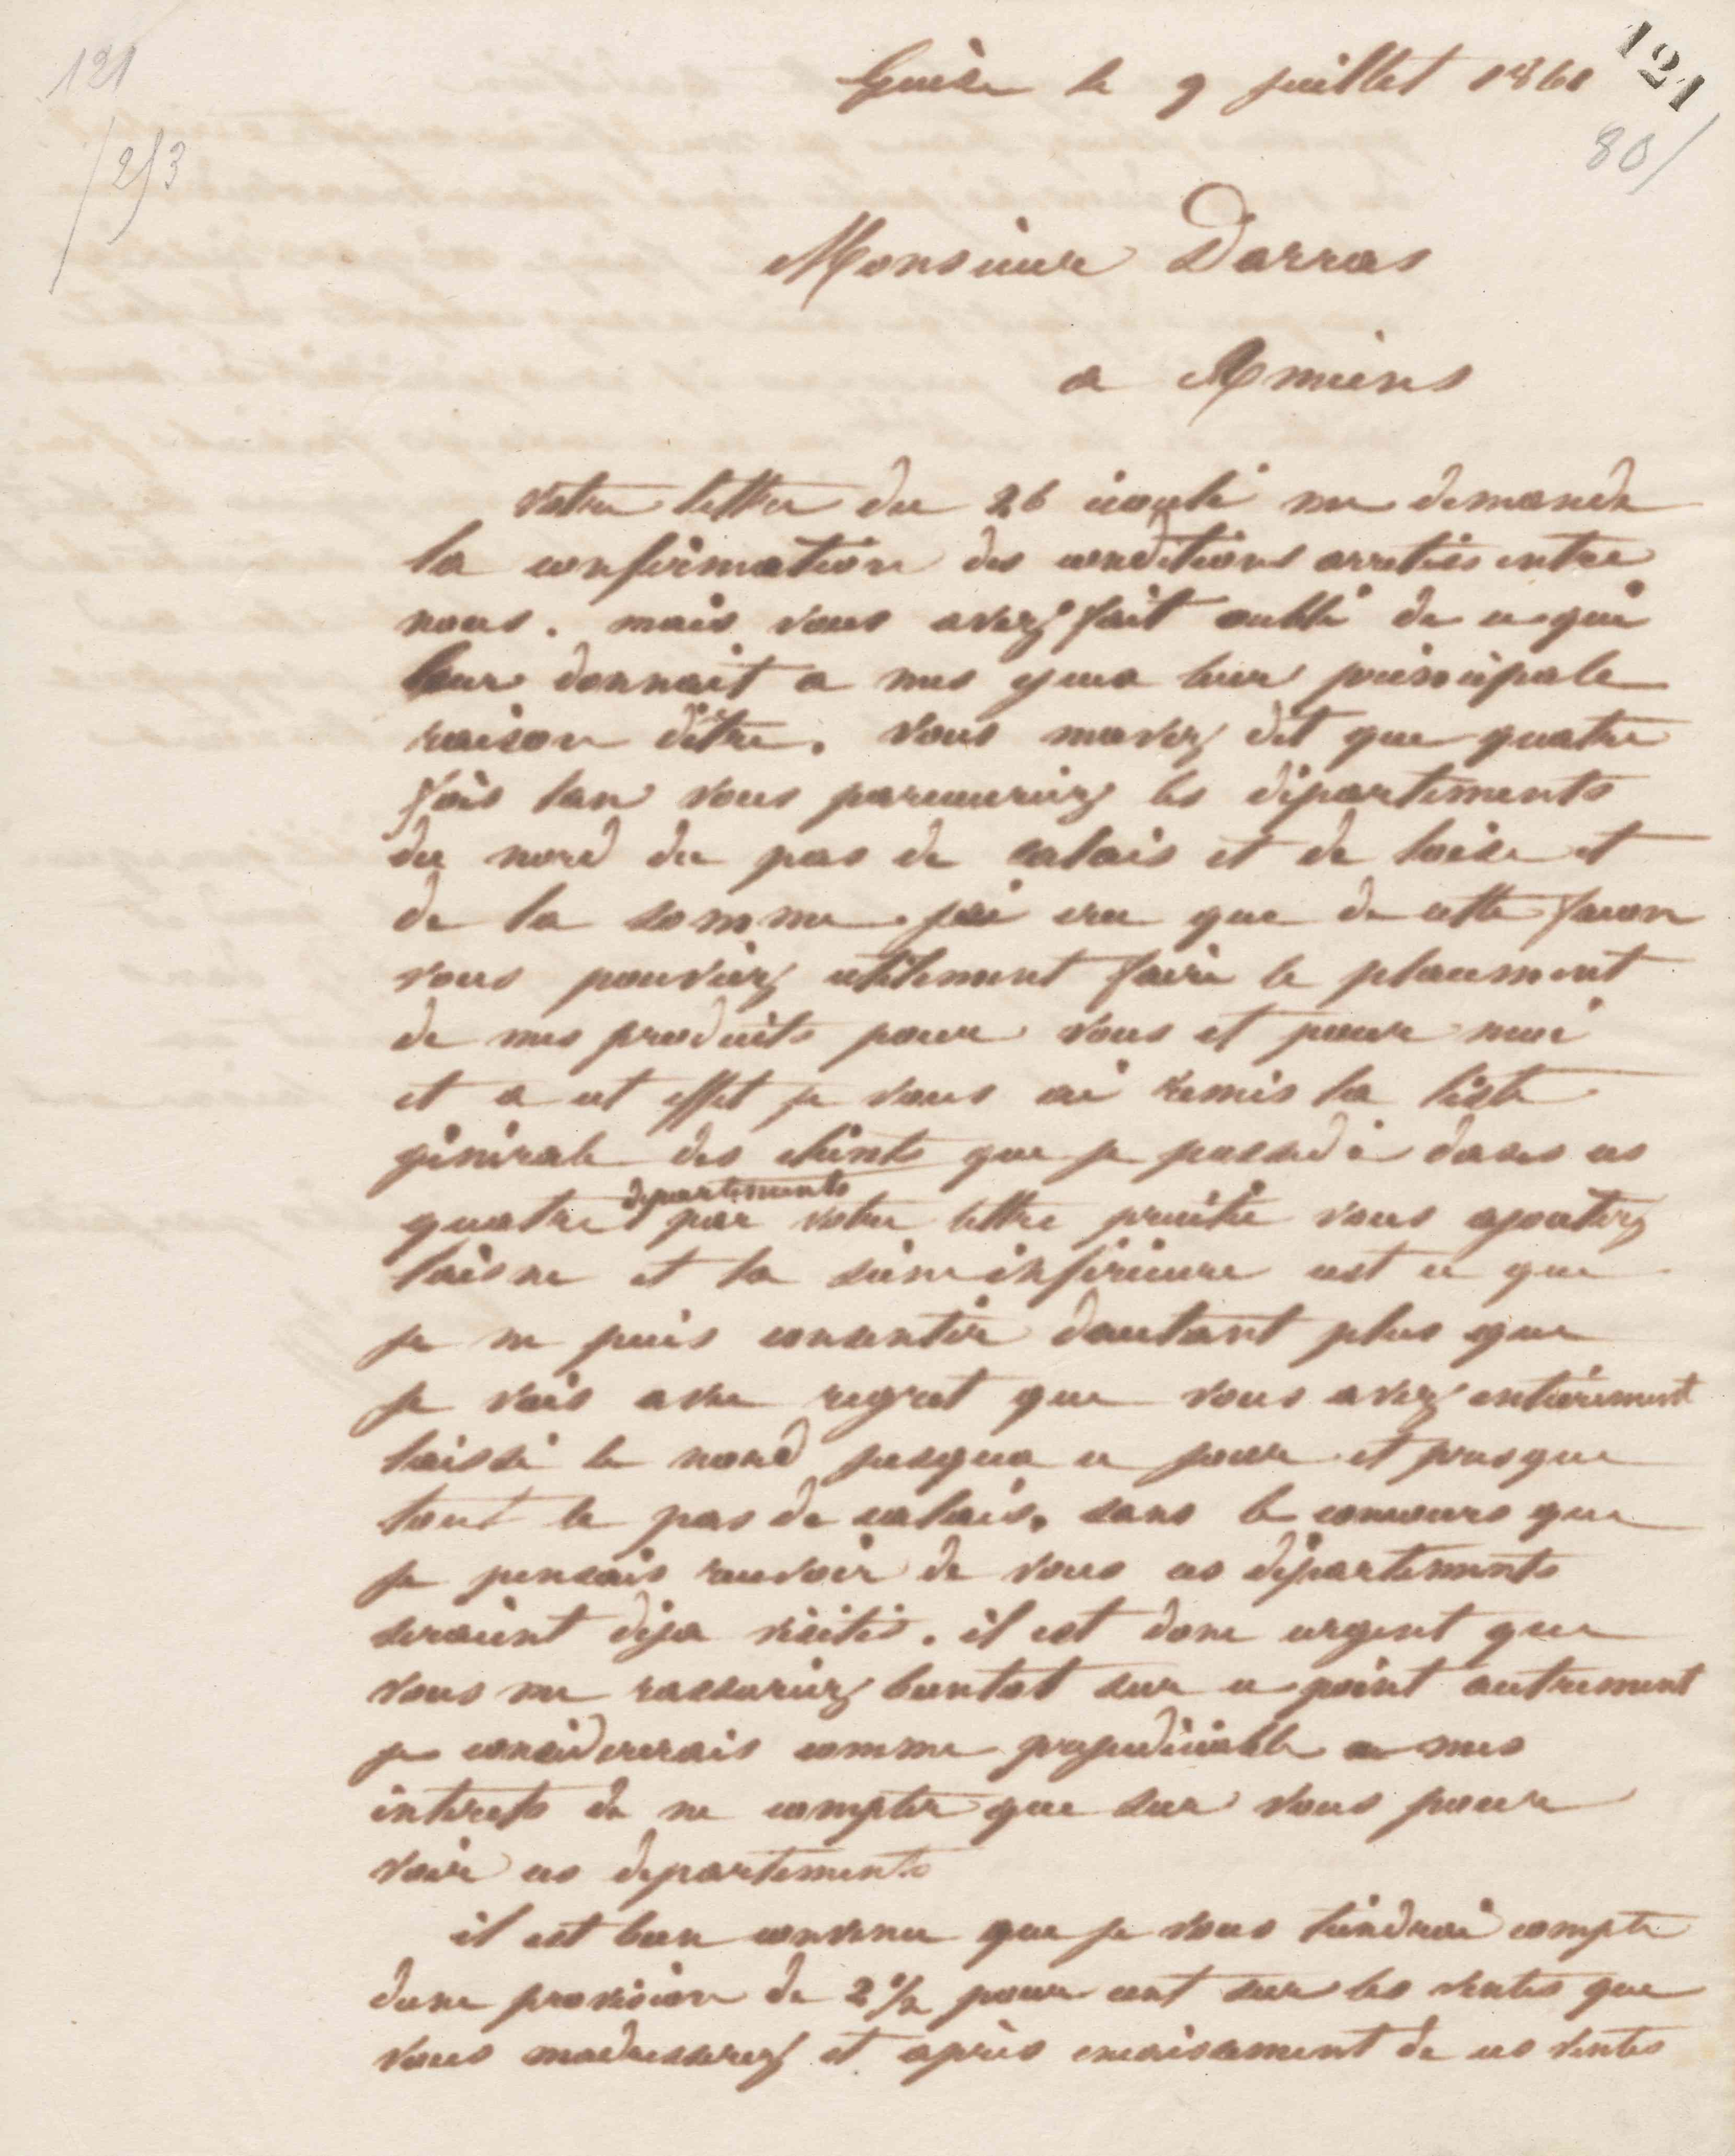 121
121
80/
253
Guise le 9 juillet 1860
Monsieur Darras
a Amiens
votre lettre du 26 écoulé me demande
la confirmation des conditions arretées entre
nous. mais vous avez fait oubli de ce qui
leur donnait a mes yeux leur principale
raison d'être. vous mavez dit que quatre
fois lan vous parcouriez les départements
du nord du pas de calais et de loise et
de la somme. jai cru que de cette facon
vous pouviez utilement faire le placement
de mes produits pour vous et pour moi
et a cet effet je vous ai remis la liste
générale des clients que je possède dans ces
quatre departements par votre lettre precitée vous ajoutez
laisne et la seine inférieure cest ce que
je ne puis consentir dautant plus que
je vois avec regret que vous avez entièrement
laissé le nord jusqua ce jour et presque
tout le pas de calais. sans le concours que
je pensais recevoir de vous ces départements
seraient déja visités. il est donc urgent que
vous me rassuriez bientot sur ce point autrement
je considererais comme prejudiciable a mes
interets de ne compter que sur vous pour
voir ces departements
il est bien convenu que je vous tiendrai compte
dune provision de 2 ½ pour cent sur les ventes que
vous madresserez et après encaissement de ces ventes